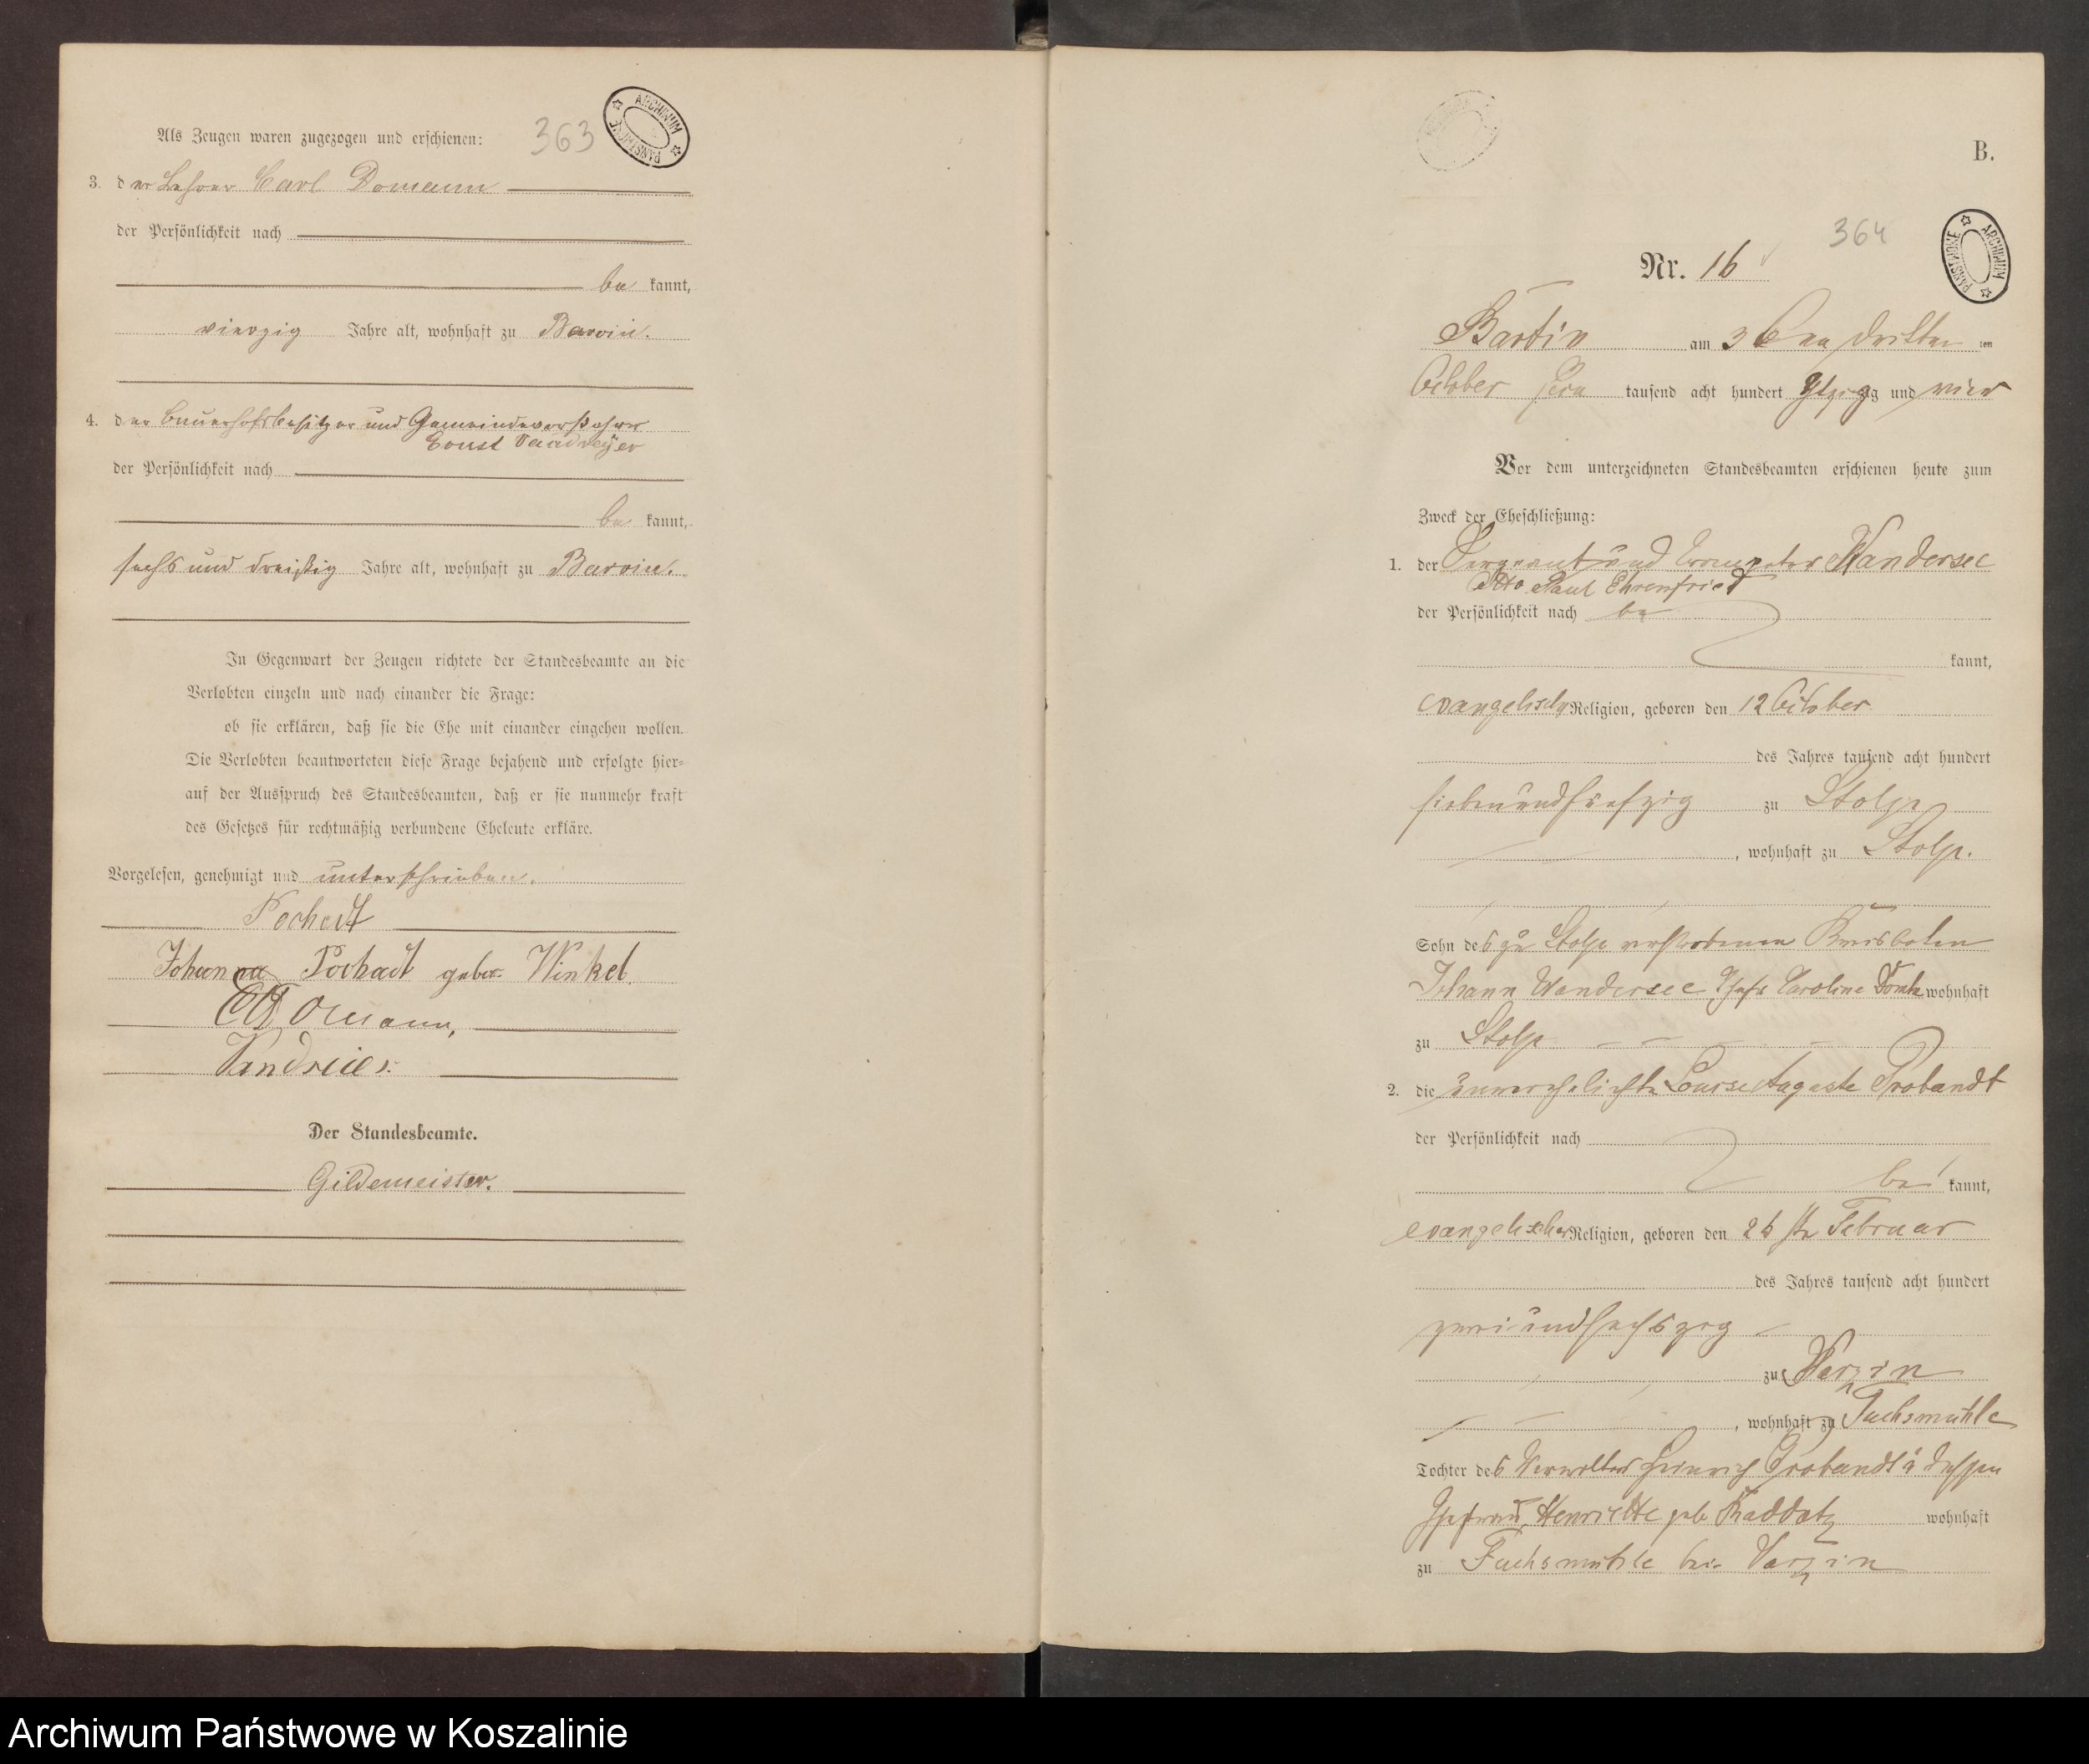 363
ARCHIWUM PAŃSTWOWE
Als Zeugen waren zugezogen und erschienen:
3. der Lehrer Carl Domann
der Persönlichkeit nach
be kannt,
vierzig Jahre alt, wohnhaft zu Barvin.
4. der Bauerhofsbesitzer und Gemeindevorsteher
Ernst Vandreyer
der Persönlichkeit nach
be kannt,
sechs und dreißig Jahre alt, wohnhaft zu Barvin.
In Gegenwart der Zeugen richtete der Standesbeamte an die
Verlobten einzeln und nach einander die Frage:
ob sie erklären, daß sie die Ehe mit einander eingehen wollen.
Die Verlobten beantworteten diese Frage bejahend und erfolgte hier-
auf der Ausspruch des Standesbeamten, daß er sie nunmehr kraft
des Gesetzes für rechtmäßig verbundene Eheleute erkläre.
Vorgelesen, genehmigt und unterschrieben.
Pochadt
Johanna Pochadt geb. Winkel.
Domann,
Vandreier.
Der Standesbeamte.
Gildemeister.
B.
364
ARCHIWUM PAŃSTWOWE
Nr. 16
Bartin am 3 den dritten ten
October tausend acht hundert achtzig und vier
Vor dem unterzeichneten Standesbeamten erschienen heute zum
Zweck der Eheschließung:
1. der Sergeant und Trompeter Wandersee
Otto Paul Ehrenfried
der Persönlichkeit nach be
kannt,
evangelischer Religion, geboren den 12 October
des Jahres tausend acht hundert
siebenundfünfzig zu Stolp
, wohnhaft zu Stolp.
Sohn des zu Stolp verstorbenen Kreisboten
Johann Wandersee Caroline wohnhaft
zu Stolp
2. die unverehelichte Louise Auguste Probandt
der Persönlichkeit nach
be kannt,
evangelischer Religion, geboren den 26 ten Februar
des Jahres tausend acht hundert
zweiundsechszig
zu Varzin
, wohnhaft zu Fuchsmühle
Tochter des Verwalters Heinrich Probandt u dessen
Ehefrau Henriette geb Raddatz wohnhaft
zu Fuchsmühle bei Varzin
Archiwum Państwowe w Koszalinie